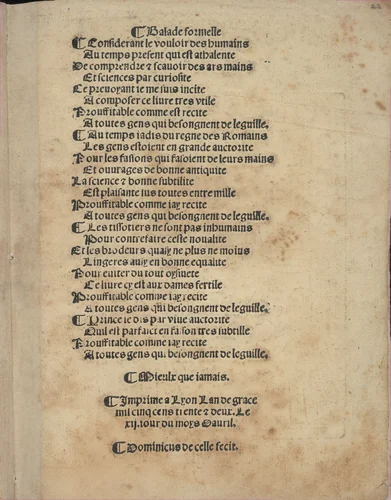 ¶ Balade formelle
¶ Considerant le vouloir des humains
Au temps present qui est athalente
De comprendre ⁊ scauoir des ars mains
Et sciences par curiosite
Ce preuoyant ie me suis incite
A composer ce liure tres vtile
Prouffitable comme est recite
A toutes gens qui besongnent de leguille.
¶ Au temps iadis du regne des Romains
Les gens estoient en grande auctorite
Pour les fasions qui faisoient de leurs mains
Et ouurages de bonne antiquite
La science ⁊ bonne subtilite
Est plaisante tus toutes entre mille
Prouffitable comme iay recite
A toutes gens qui besongnent de leguille.
¶ Les tissotiers ne sont pas inhumains
Pour contrefaire ceste noualite
Et les brodeurs quasy ne plus ne moins
Lingeres aussy en bonne equalite
Pour euiter du tout oysiuete
Ce liure cy est aux dames fertile
Prouffitable comme iay recite
A toutes gens qui besongnent de leguille
¶ Prince ie dis par viue auctorite
Quil est parfaict en fasson tres subtille
Prouffitable comme iay recite
A toutes gens qui besongnent de leguille.
¶ Mieulx que iamais.
¶ Imprime a Lyon Lan de grace
mil cinq cens trente ⁊ deux. Le
xij. iour du moys Dauril.
¶ Dominicus de celle fecit.